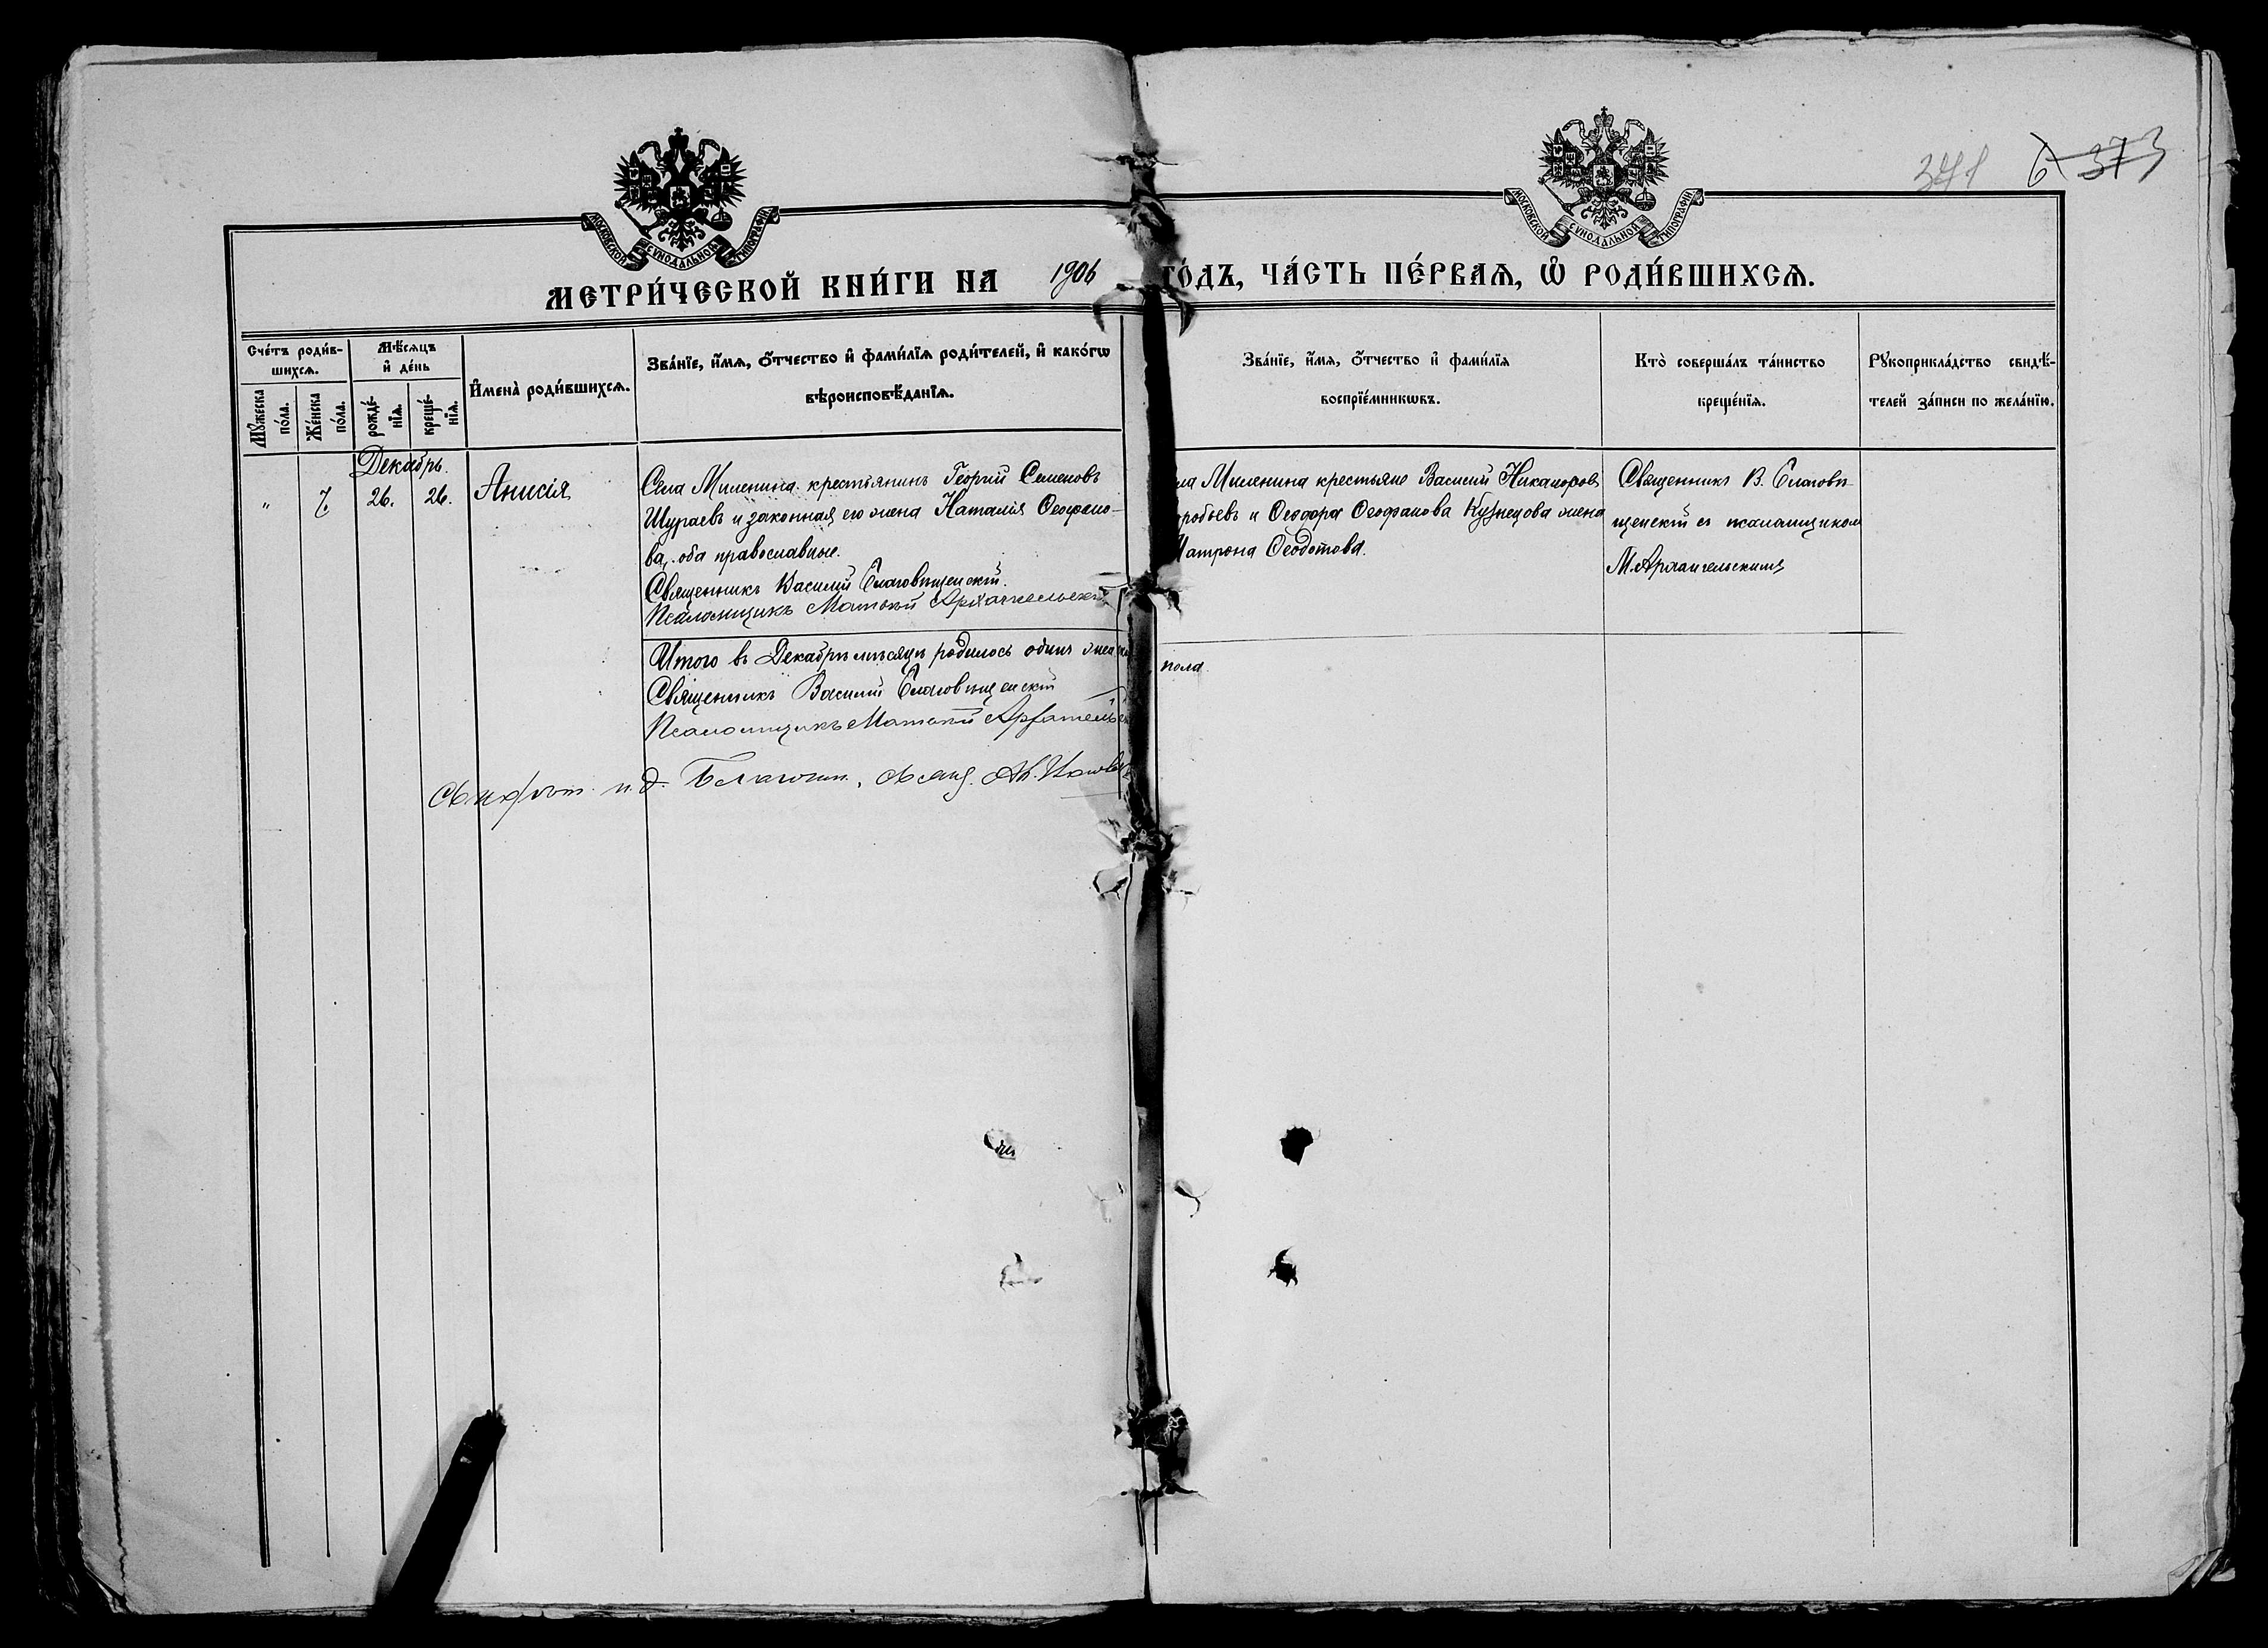 МОСКОВСКОЙ СѴНОДАЛЬНОЙ ТИПОГРАФІИ
МОСКОВСКОЙ СѴНОДАЛЬНОЙ ТИПОГРАФІИ
371 6 373
МЕТРИ́ЧЕСКОЙ КНИ́ГИ НА 1906 ГО́ДЪ, ЧА́СТЬ ПЕ́РВАѦ, Ѡ҆ РОДИ́ВШИХСѦ.
Сче́тъ роди́в-
шихсѧ.
Мꙋ́жеска по́ла.
Же́нска по́ла.
Мѣ́сѧцъ
и҆ де́нь
рожде́-
нїѧ.
креще́-
нїѧ.
И҆мена̀ роди́вшихсѧ.
Зва́нїе, и҆́мѧ, ѻ҆́тчество и҆ фами́лїѧ роди́телей, и҆ како́гѡ
вѣроисповѣ́данїѧ.
Зва́нїе, и҆́мѧ, ѻ҆́тчество и҆ фами́лїѧ
воспрїе́мникѡвъ.
Кто̀ соверша́лъ та́инство
креще́нїѧ.
Рꙋкоприкла́дство свидѣ́-
телей за́писи по жела́нїю.
Декабрь.
" 7. 26. 26. Анисія
Села Миленина крестьянинъ Георгій Семеновъ
Шураевъ и законная его жена Наталія Ѳеофано-
ва, оба православные.
Священникъ Василій Благовѣщенскій.
Псаломщикъ Матвѣй Архангельскій
Миленина крестьяне Василій Никаноровъ
и Ѳеодора Ѳеофанова Кузнецова жена
Матрона Ѳеодотова.
Священникъ В. Благовѣ-
щенскій съ псаломщикомъ
М. Архангельскимъ
Итого въ Декабрѣ мѣсяцѣ родилось одинъ
пола
Священникъ Василій Благовѣщенскій
Псаломщикъ Матвѣй Архангельск
и. д. Благочин.